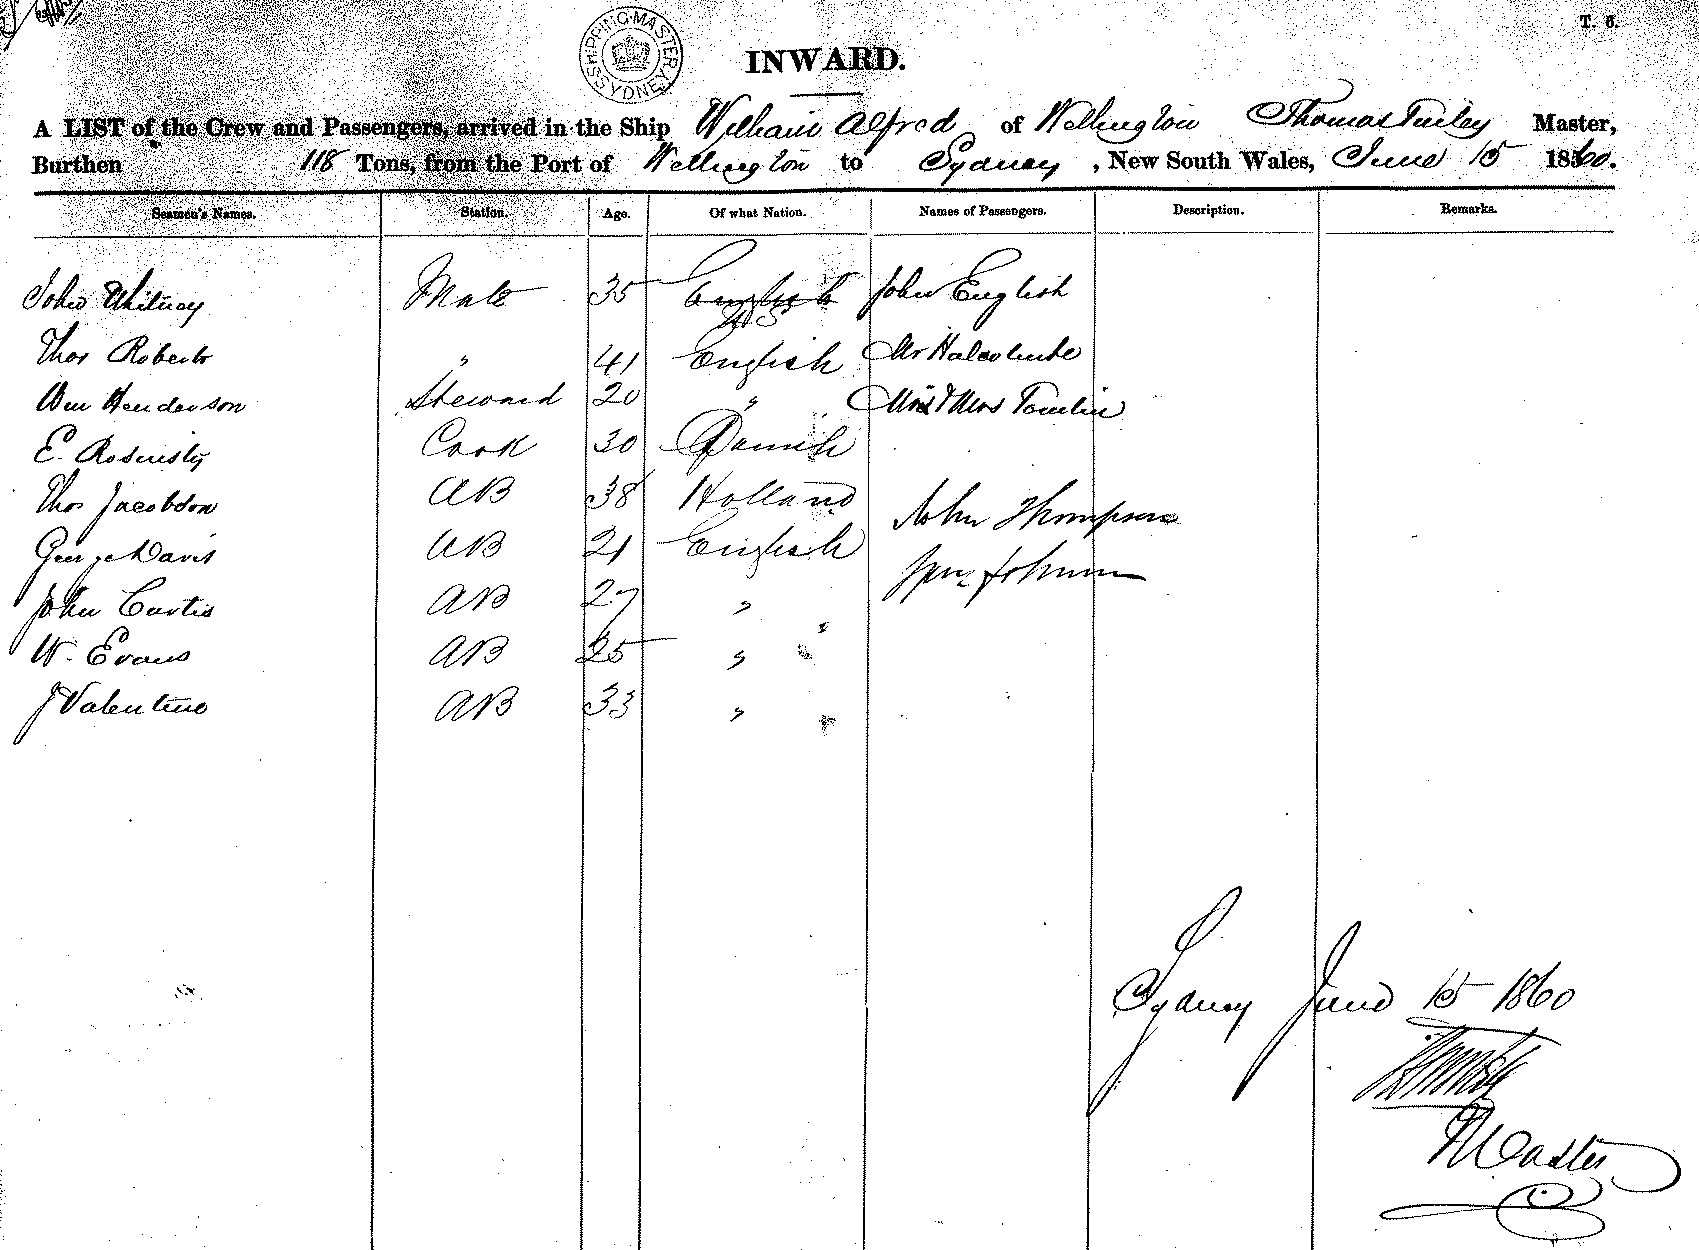 T. 6.
SHIPPING MASTER SYDNEY
INWARD.
A LIST of the Crew and Passengers, arrived in the Ship William Alfred of Wellington Thomas Turley Master,
Burthen 118 Tons, from the Port of Wellington to Sydney, New South Wales, June 15 1860.
Seamen's Names. Station. Age. Of what Nation. Names of Passengers. Description. Remarks.
John Whitney Mate 35 English John English
Thos Roberts " 41 English Mr
Wm Henderson Steward 20 " Mr & Mrs Tomlin
E. Cook 30 Danish
Thos Jacobson AB 38 Holland John Thompson
George Davis AB 21 English Johnson
John Curtis AB 27 "
W. Evans AB 25 "
J Valentine AB 33 "
Sydney June 15 1860
Master